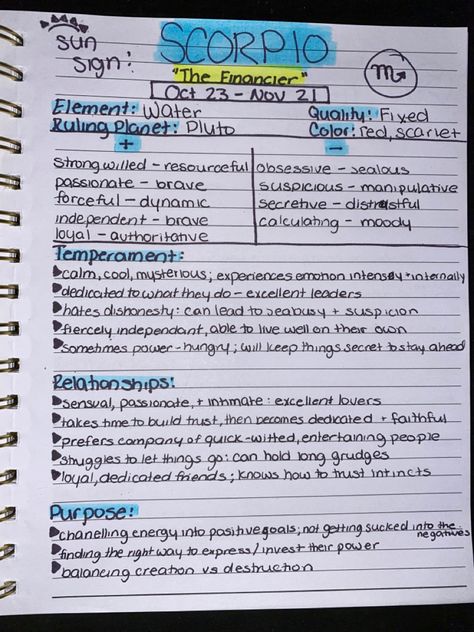 sun
sign:
SCORPIO
"The Financier"
Oct 23 - Nov 21
♏
Element: Water
Quality: Fixed
Ruling Planet: Pluto
Color: red, scarlet
+
-
strong willed - resourceful
obsessive - jealous
passionate - brave
suspicious - manipulative
forceful - dynamic
secretive - distrustful
independent - brave
calculating - moody
loyal - authoritative
Temperament:
calm, cool, mysterious; experiences emotion intensly + internally
dedicated to what they do - excellent leaders
hates dishonesty: can lead to jealousy + suspicion
fiercely independant, able to live well on their own
sometimes power-hungry; will keep things secret to stay ahead
Relationships:
sensual, passionate, + intimate: excellent lovers
takes time to build trust, then becomes dedicated + faithful
prefers company of quick-witted, entertaining people
struggles to let things go: can hold long grudges
loyal, dedicated friends; knows how to trust intincts
Purpose:
chanelling energy into positive goals; not getting sucked into the negatives
finding the right way to express/invest their power
balancing creation vs destruction